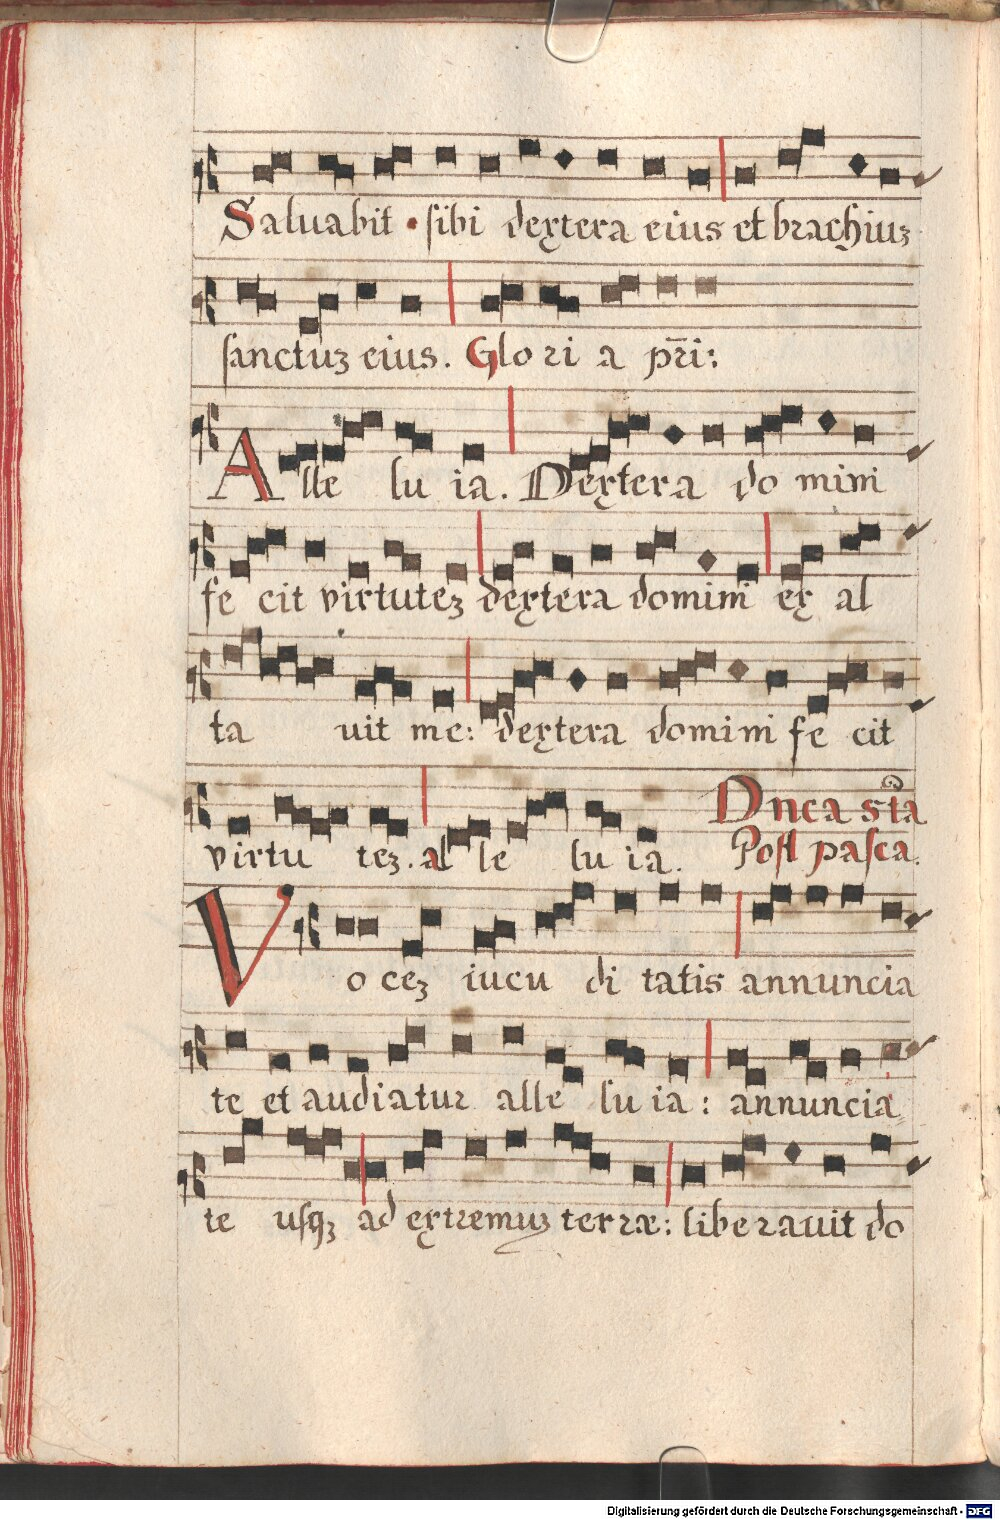 Saluabit · sibi dextera eius et brachiuʒ
sanctuʒ eius. Glo ri a pr̄i:
A lle lu ia. Dextera do mini
fe cit virtuteʒ dextera domini ex al
ta uit me: dextera domini fe cit
virtu teʒ. al le lu ia. Dnca 3ta
Post pasca.
V o ceʒ iucu di tatis annuncia
te et audiatur alle lu ia: annuncia
te usqʒ ad extremuʒ terræ: liberauit do
Digitalisierung gefördert durch die Deutsche Forschungsgemeinschaft - DFG